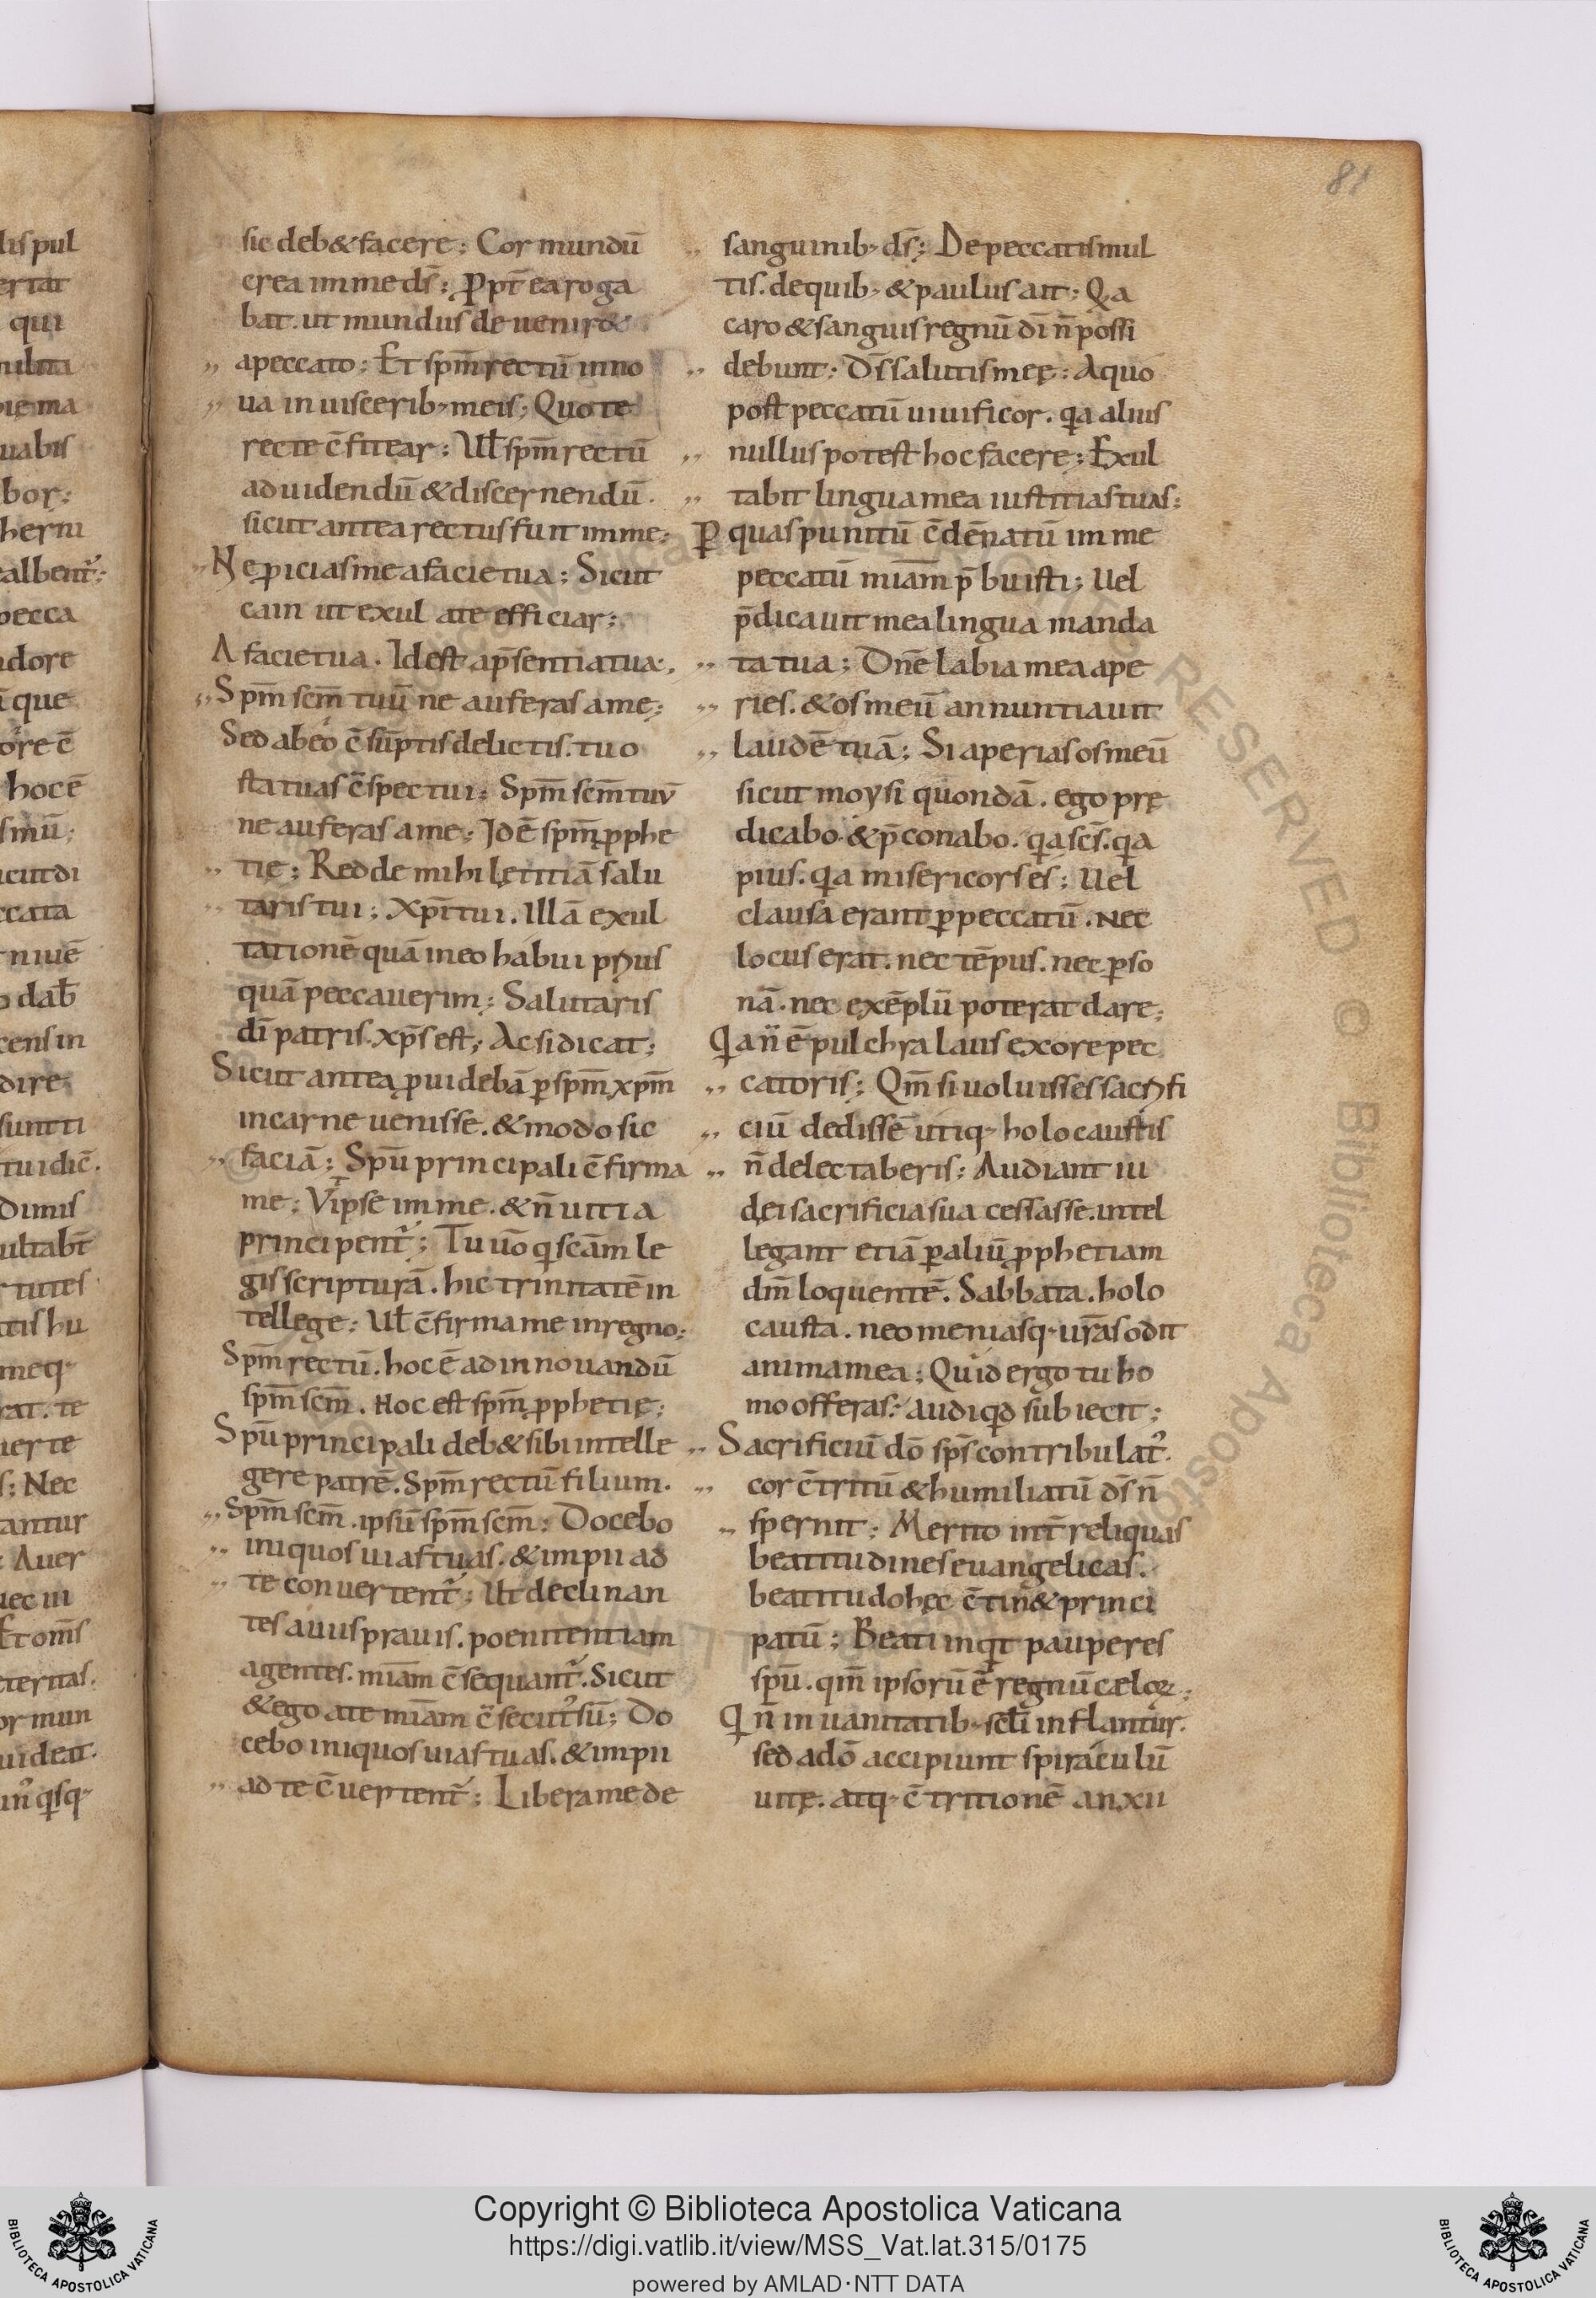 81
sic deb&facere; Cor mundū
crea inme ds̄; ꝓpt̄ earoga
bat. ut mundus deuenir&
apeccato; Et sp̄m rectū inno
ua inuisceribꝰ meis; Quo te
recte c̄fitear; Uƚ sp̄m rectū
aduidendū & discernendū.
sicut antea rectus fuit inme;
Ne ꝓicias me afacie tua; Sicut
cain ut exul ate efficiar;
Afacie tua. Id est ap̄sentia tua;
Sp̄m sc̄m tuū ne auferas ame;
Sed abeo c̄sūptis delictis. tuo
statuas c̄spectui; Sp̄m sc̄m tuū
ne auferas ame; Id ē sp̄m ꝓphe
tię; Redde mihi lętitiā salu
taris tui; Xp̄i tui. Illā exul
tationē quā ineo habui prius
quā peccauerim; Salutaris
dī patris. xp̄s est; Ac si dicat;
Sicut antea ꝓuidebā ꝑ sp̄m xp̄m
incarne uenisse. & modo sic
faciā; Sp̄u principali c̄firma
me; Vt ipse inme. & n̄ uitia
principent᷑; Tu uō q̄ sc̄am le
gis scripturā. hic trinitatē in
tellege; Uƚ c̄firma me inregno;
Sp̄m rectū. hoc ē adinnouandū
sp̄m sc̄m. Hoc est sp̄m ꝓphetię;
Sp̄u principali deb& sibi intelle
gere patrē. Sp̄m rectū filium.
Sp̄m sc̄m. ipsū sp̄m sc̄m; Docebo
iniquos uias tuas. & impii ad
te conuertent᷑; Ut declinan
tes auiis prauis. poenitentiam
agentes. mīam c̄sequant᷑. Sicut
& ego ate mīam c̄secut᷒ sū; Do
cebo iniquos uias tuas. & impii
ad te c̄uertent᷑; Libera me de
sanguinibꝰ ds̄; De peccatis mul
tis. de quibꝰ & paulus ait; Qa
caro & sanguis regnū dī n̄ possi
debunt; Ds̄ salutis meę; Aquo
post peccatū uiuificor. qa alius
nullus potest hoc facere; Exul
tabit lingua mea iustitias tuas;
Ꝑ quas punitū c̄dēnatū inme
peccatū mīam p̄buisti; Uel
p̄dicauit mea lingua manda
ta tua; Dn̄e labia mea ape
ries. & os meū annuntiauit
laudē tuā; Si aperias os meū
sicut moysi quondā. ego prę
dicabo. & p̄conabo. qa sc̄s. qa
pius. qa misericors es; Uel
clausa erant ꝑ peccatū. Nec
locus erat. nec tēpus. nec ꝑso
nā. nec exēplū poterat dare;
Qa n̄ ē pulchra laus ex ore pec
catoris; Qm̄ si uoluisses sacrifi
ciū dedissē utiqꝰ holocaustis
n̄ delectaberis; Audiant iu
dei sacrificia sua cessasse. intel
legant etiā ꝑ aliū ꝓphetiam
dm̄ loquentē. Sabbata. holo
causta. neomeniasqꝰ ur̄as odit
anima mea; Quid ergo tu ho
mo offeras; audi qd subiecit;
Sacrificiū dō sp̄s contribulat᷒.
cor c̄tritū & humiliatū ds̄ n̄
spernit; Merito int̄ reliquas
beatitudines euangelicas.
beatitudo hęc c̄tin& princi
patū; Beati inqt pauperes
sp̄u. qm̄ ipsorū ē regnū cęloꝝ;
Q n̄ in uanitatibꝰ sclī inflantur.
sed adō accipiunt spiraculū
uitę. atqꝰ c̄tritionē anxii
Copyright © Biblioteca Apostolica Vaticana
https://digi.vatlib.it/view/MSS_Vat.lat.315/0175
powered by AMLAD·NTT DATA